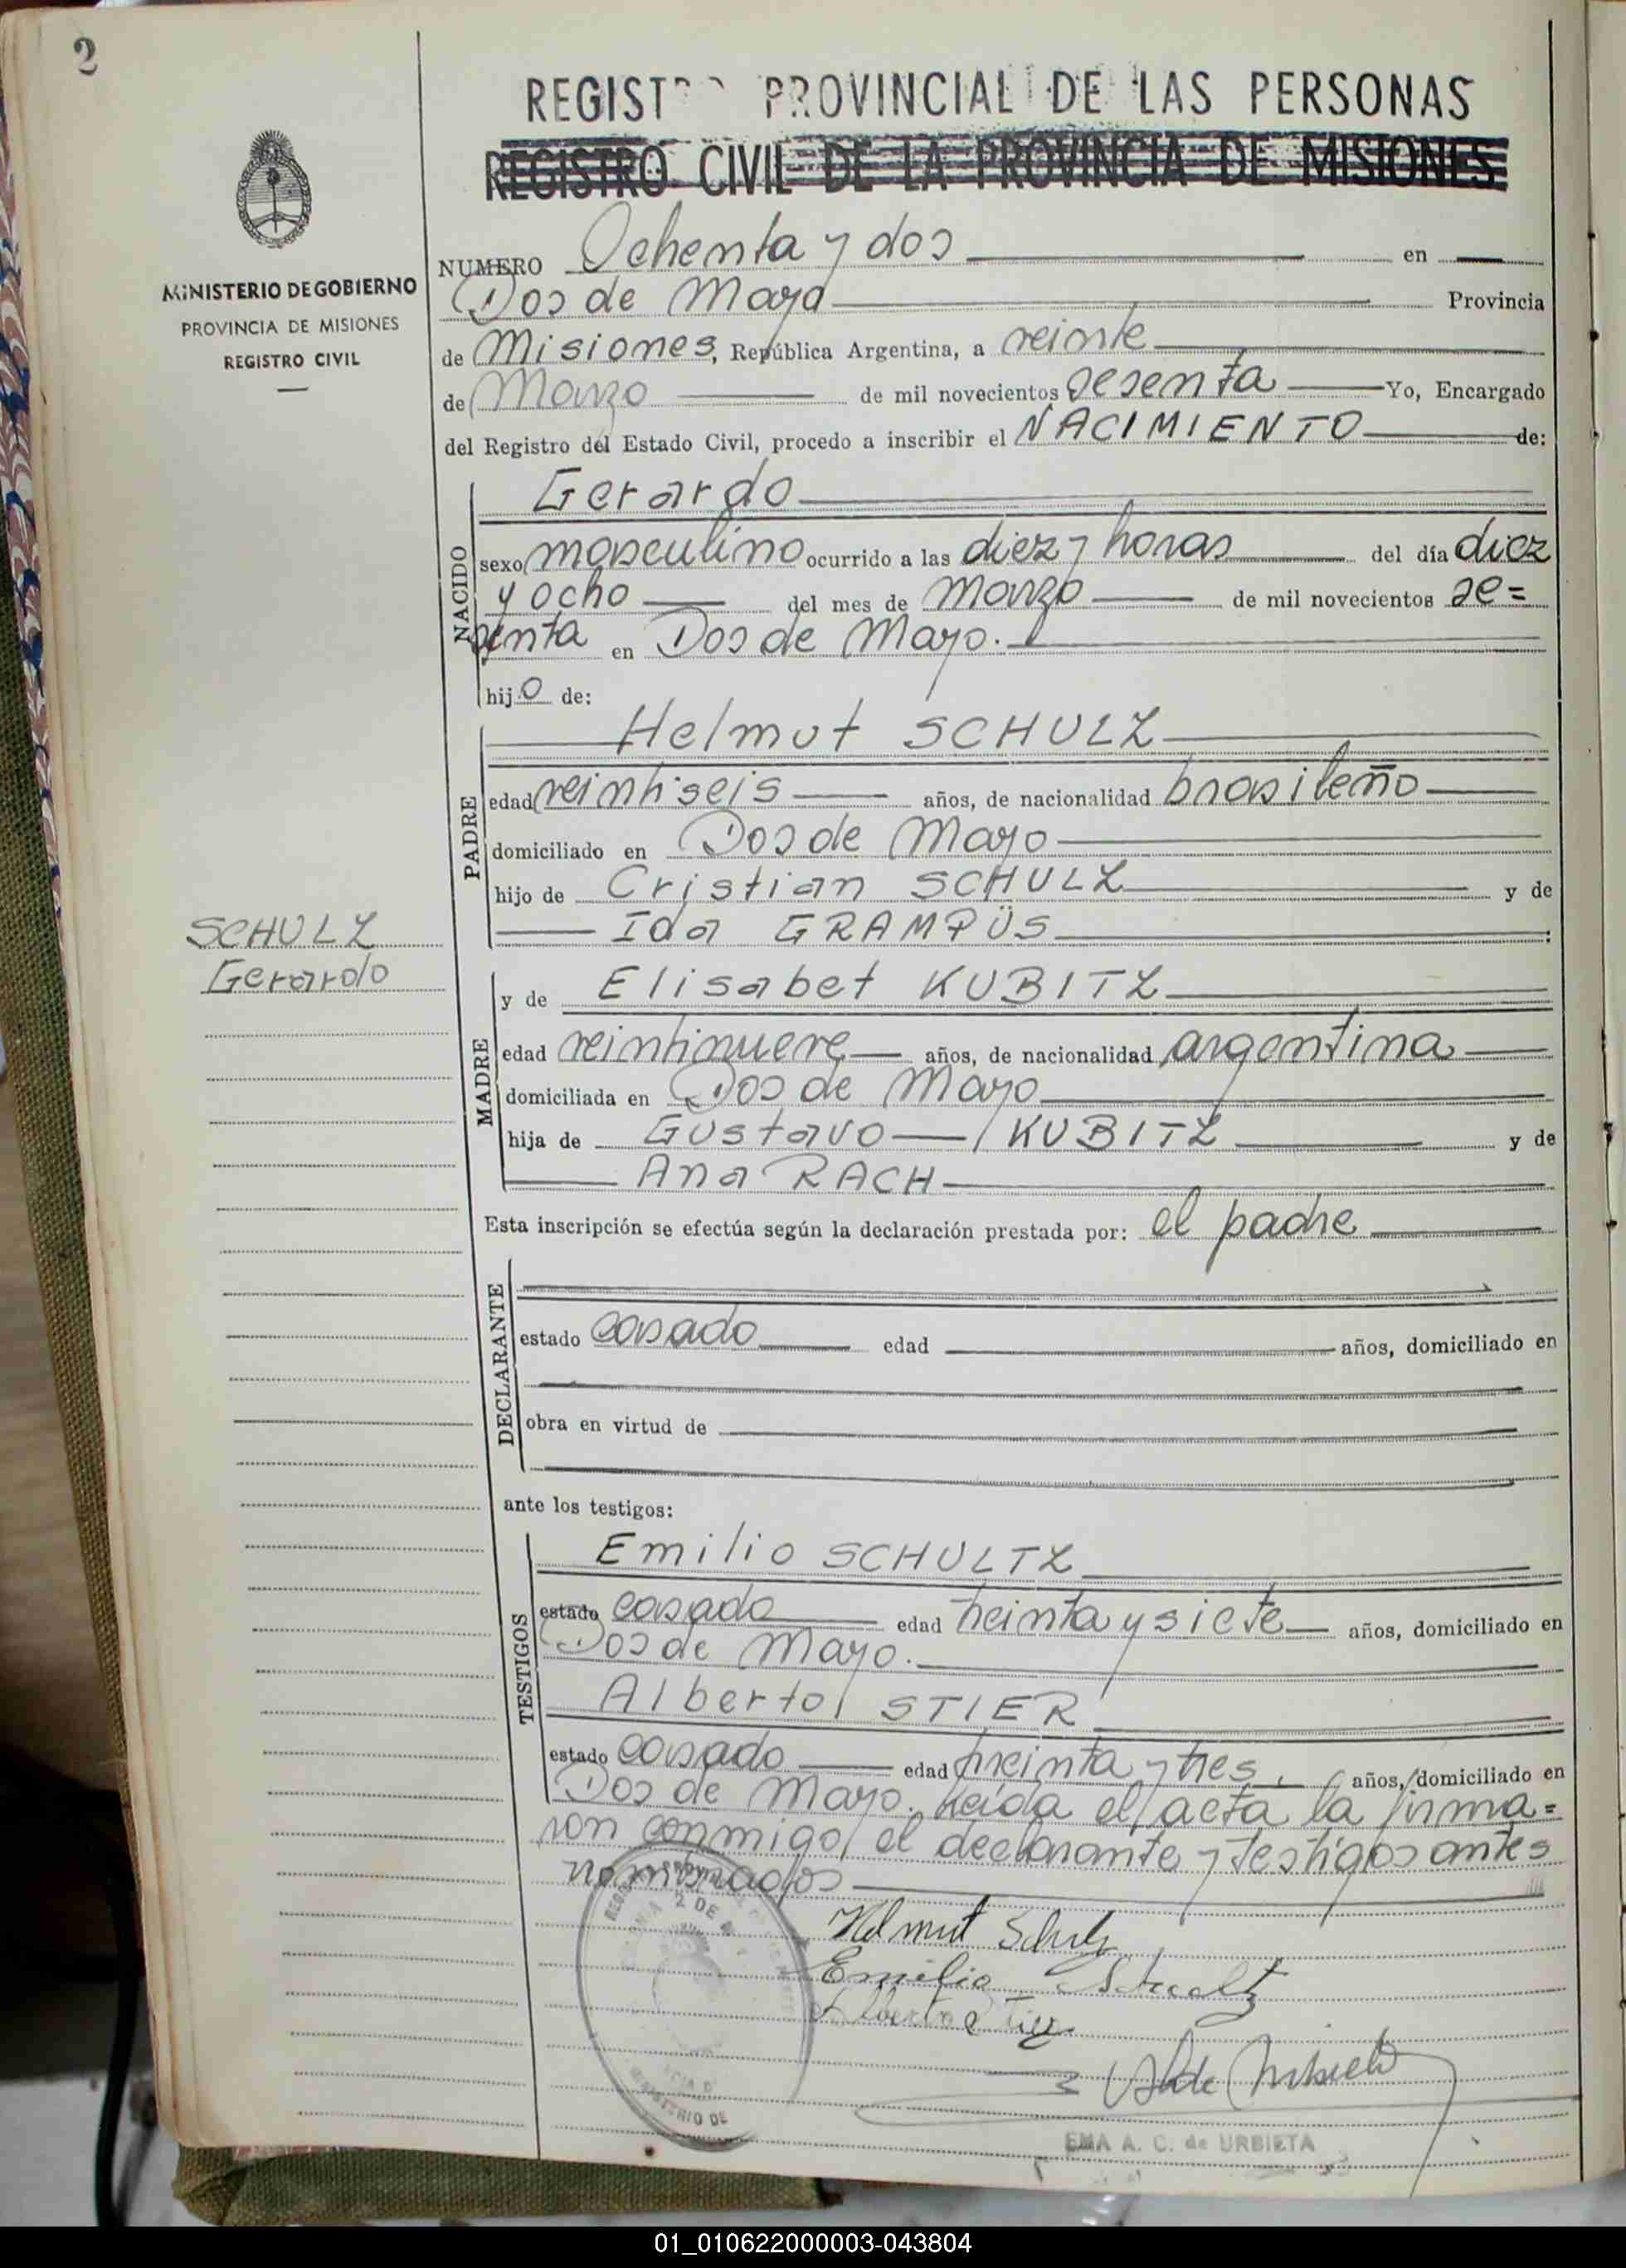 2
REGIST PROVINCIAL DE LAS PERSONAS
REGISTRO CIVIL DE LA PROVINCIA DE MISIONES
MINISTERIO DE GOBIERNO
PROVINCIA DE MISIONES
REGISTRO CIVIL
NUMERO Ochenta y dos en
Dos de Mayo Provincia
de Misiones, República Argentina, a veinte
de Marzo de mil novecientos sesenta Yo, Encargado
del Registro del Estado Civil, procedo a inscribir el NACIMIENTO de:
NACIDO
Gerardo
sexo masculino ocurrido a las diez y horas del día diez
y ocho del mes de marzo de mil novecientos se=
senta en Dos de Mayo.
hijo de:
PADRE
Helmut SCHULZ
edad veintiseis años, de nacionalidad brasileño
domiciliado en Dos de Mayo
hijo de Cristian SCHULZ y de
Ida GRAMPÜS
SCHULZ
Gerardo
MADRE
y de Elisabet KUBITZ
edad veintinueve años, de nacionalidad argentina
domiciliada en Dos de Mayo
hija de Gustavo KUBITZ y de
Ana RACH
Esta inscripción se efectúa según la declaración prestada por: el padre
DECLARANTE
estado casado edad años, domiciliado en
obra en virtud de
ante los testigos:
TESTIGOS
Emilio SCHULTZ
estado casado edad treinta y siete años, domiciliado en
Dos de Mayo.
Alberto STIER
estado casado edad treinta y tres, años, domiciliado en
Dos de Mayo. Leída el acta la firma=
ron conmigo el declarante y testigos antes
nombrados
Helmut Schulz
Emilio Schultz
Alberto Stier
2 DE
MINISTERIO DE
EMA A. C. de URBIETA
01_010622000003-043804